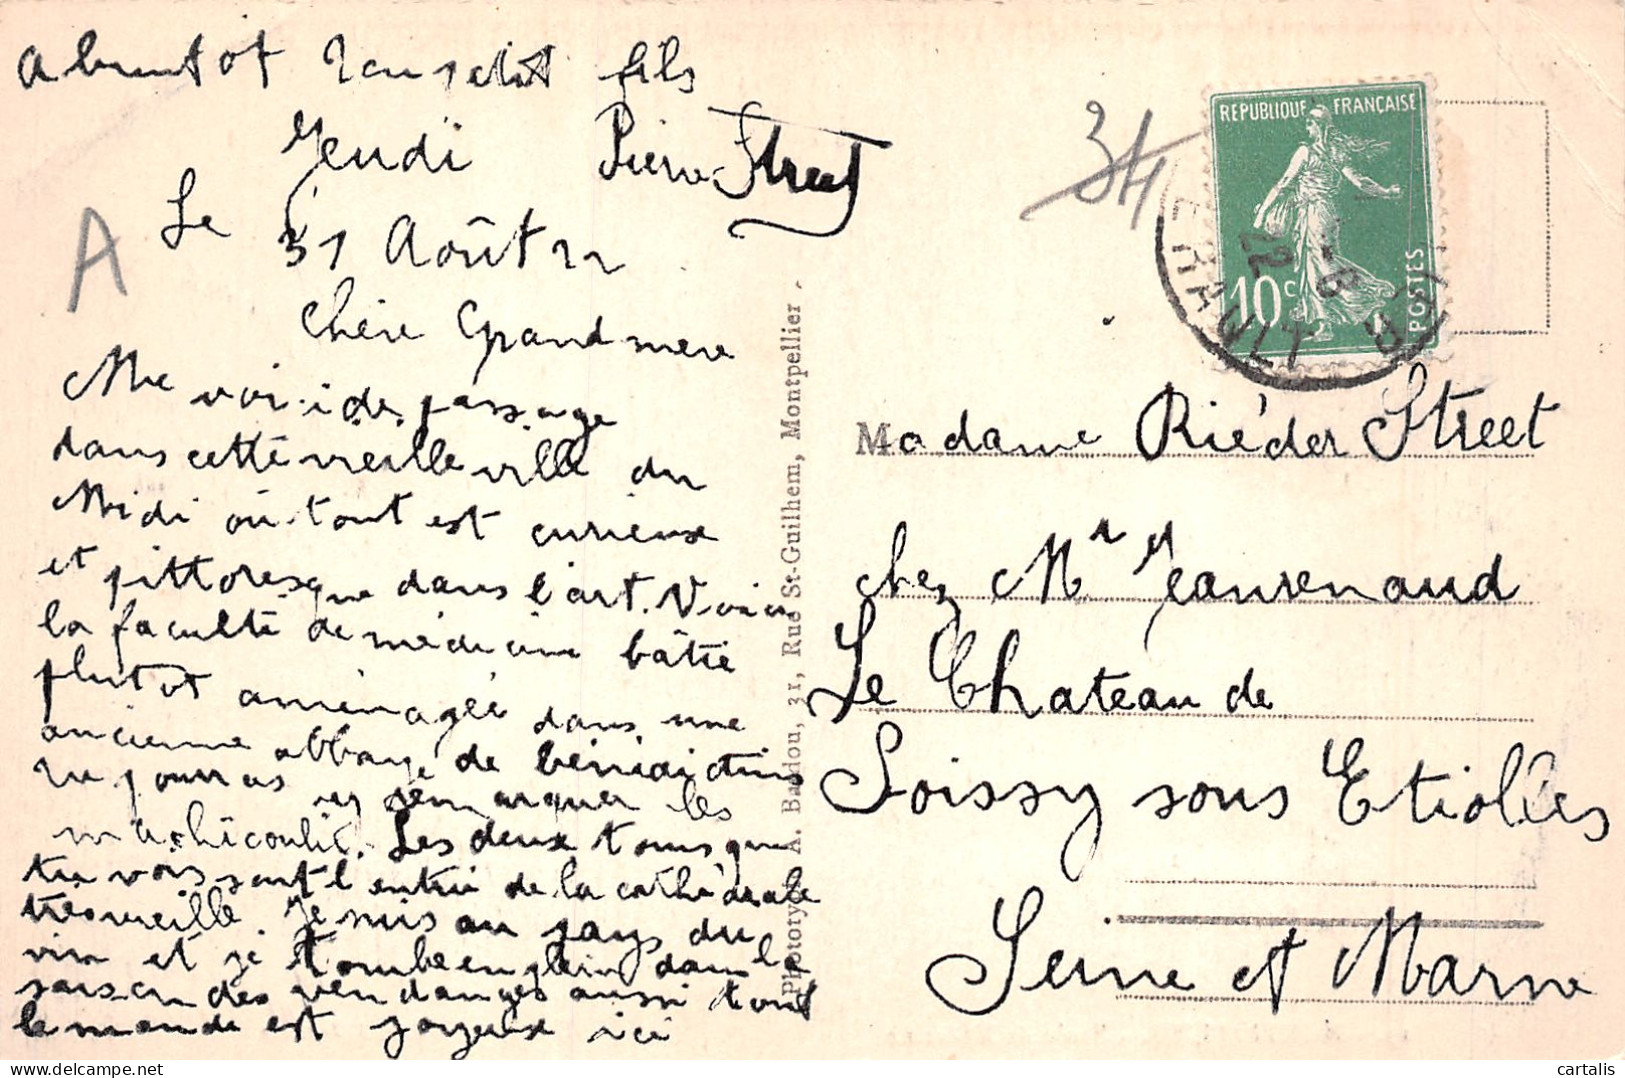 A bientot fils
Pierre Street
Jeudi
Le 31 Août 22
Chère Grand mere
Me voici de passage
dans cette vieille ville du
Midi où tout est curieux
et pittoresque dans l'art. Voici
la faculté de médecine bâtie
plutot aménagée dans une
ancienne abbaye de bénédictins
tu pourras y remarquer les
machicoulis. Les deux tours que
tu vois sont l'entrée de la cathédrale
très vieille. Je suis au pays du
vin et je tombe en plein dans la
saison des vendanges aussi tout
le monde est joyeux ici
A
Phototypie A. Bardou, 31, Rue St-Guilhem, Montpellier
34
REPUBLIQUE FRANÇAISE
10c
POSTES
HERAULT
22
Madame Riéder Street
chez Mr Jeanrenaud
Le Chateau de
Soissy sous Etiolles
Seine et Marne
cartalis